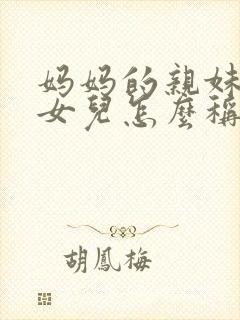 妈妈的親妹
女兒怎麼稱
胡鳳梅